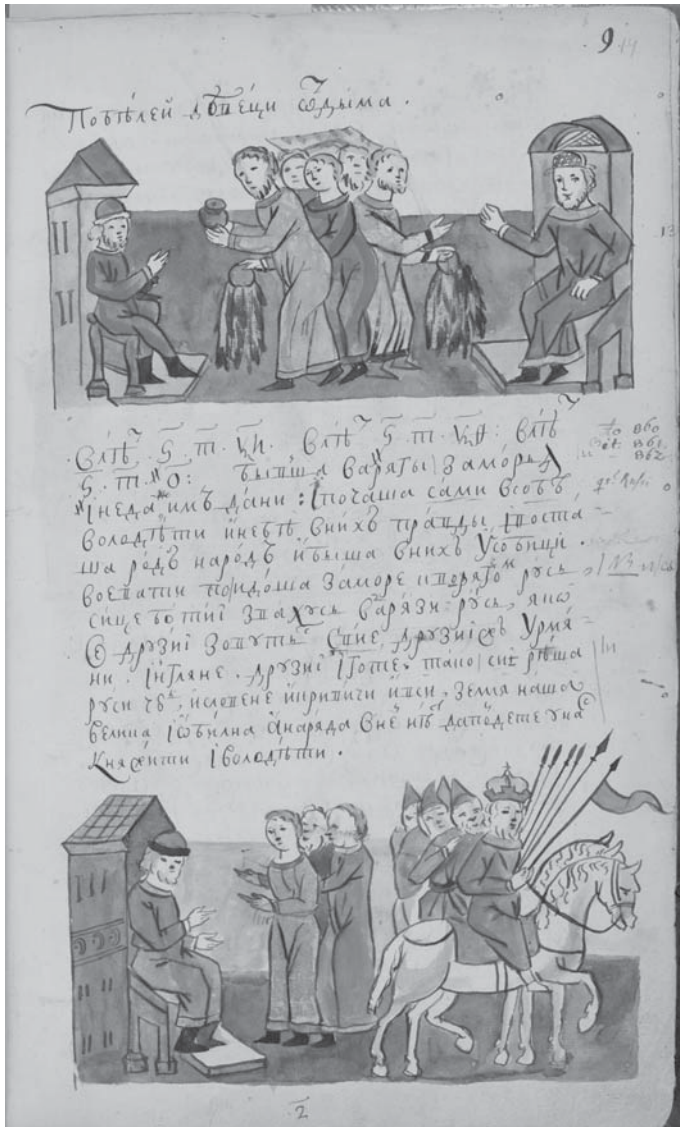 9 14
Побѣлей ѿдыма .
Влѣт . ѕ̃ . т̃ . ѯи . Влѣт ѕ̃ . т̃ . ѯѳ : влѣт
ѕ̃ . т̃ . о̃ : варягы заморья
860
861
862
инеда имъ дани : iпочаша сами всобѣ
володѣти инебѣ внихъ правды, iвоста
ша родъ народъ ибыша внихъ усобици .
воевати поидоша заморе русь ,
сице бо тиi звахусь варязи русь , яко
се друзиi зовуть Свие друзиi Урмя
ни . Iнгляне . друзиi iготе , тако сиi рѣша
руси чю , исловене икривичи ивси , земля наша
велика iѡбилна анаряда вне нѣ даподете уна
княжити iволодѣти .
2